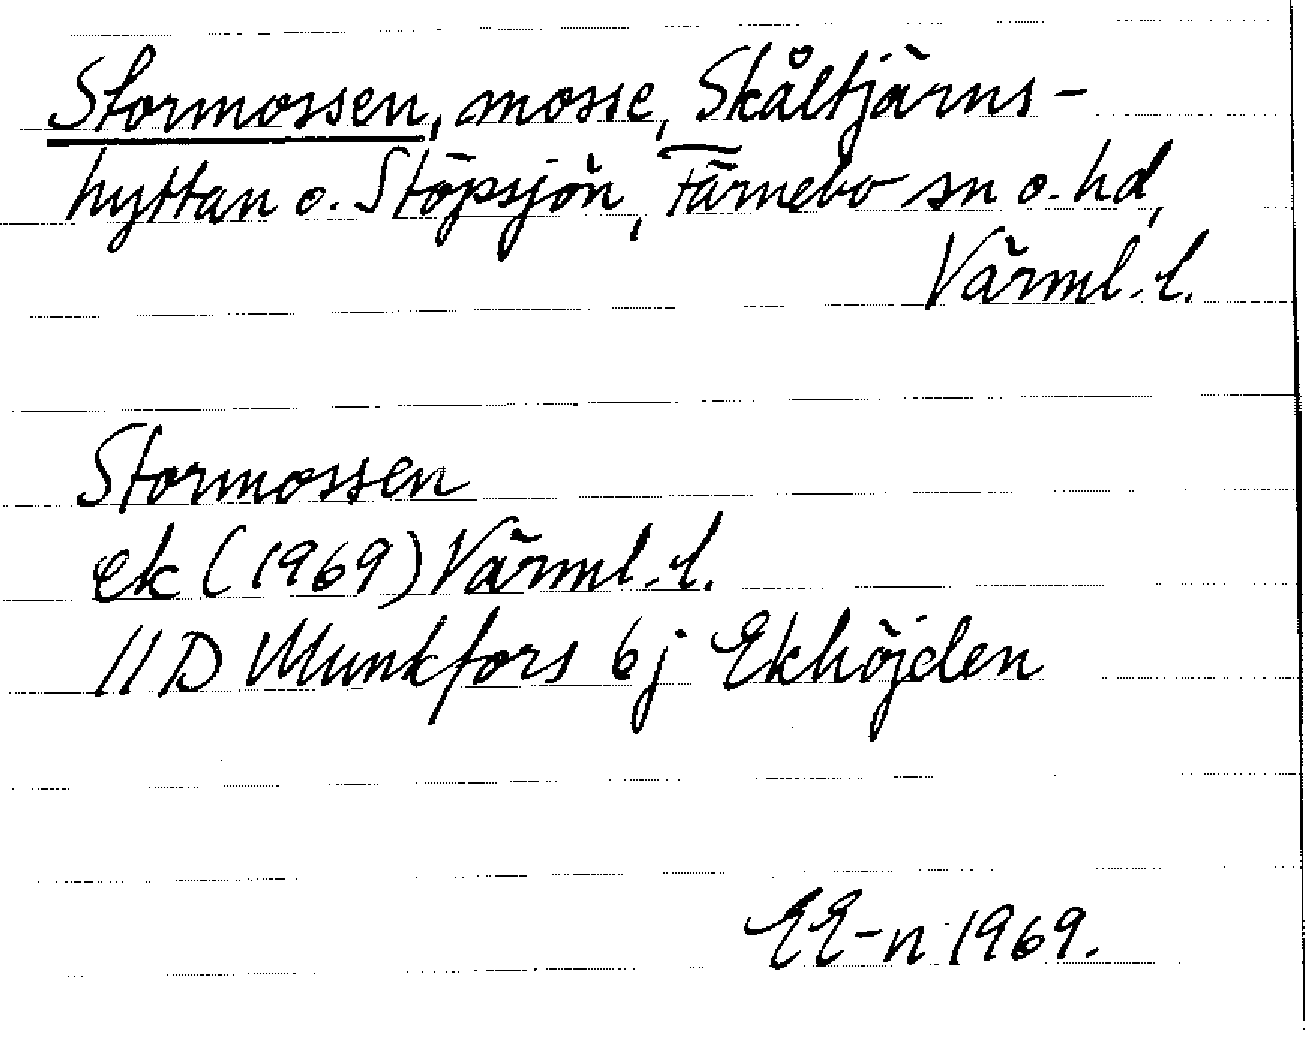 Stormossen, mosse, Skåltjärns-
hyttan o. Stöpsjön, Färnebo sn o. hd,
Värml. l.
Stormossen
ek (1969) Värml. l.
11D Munkfors 6j Ekhöjden
EE-n 1969.